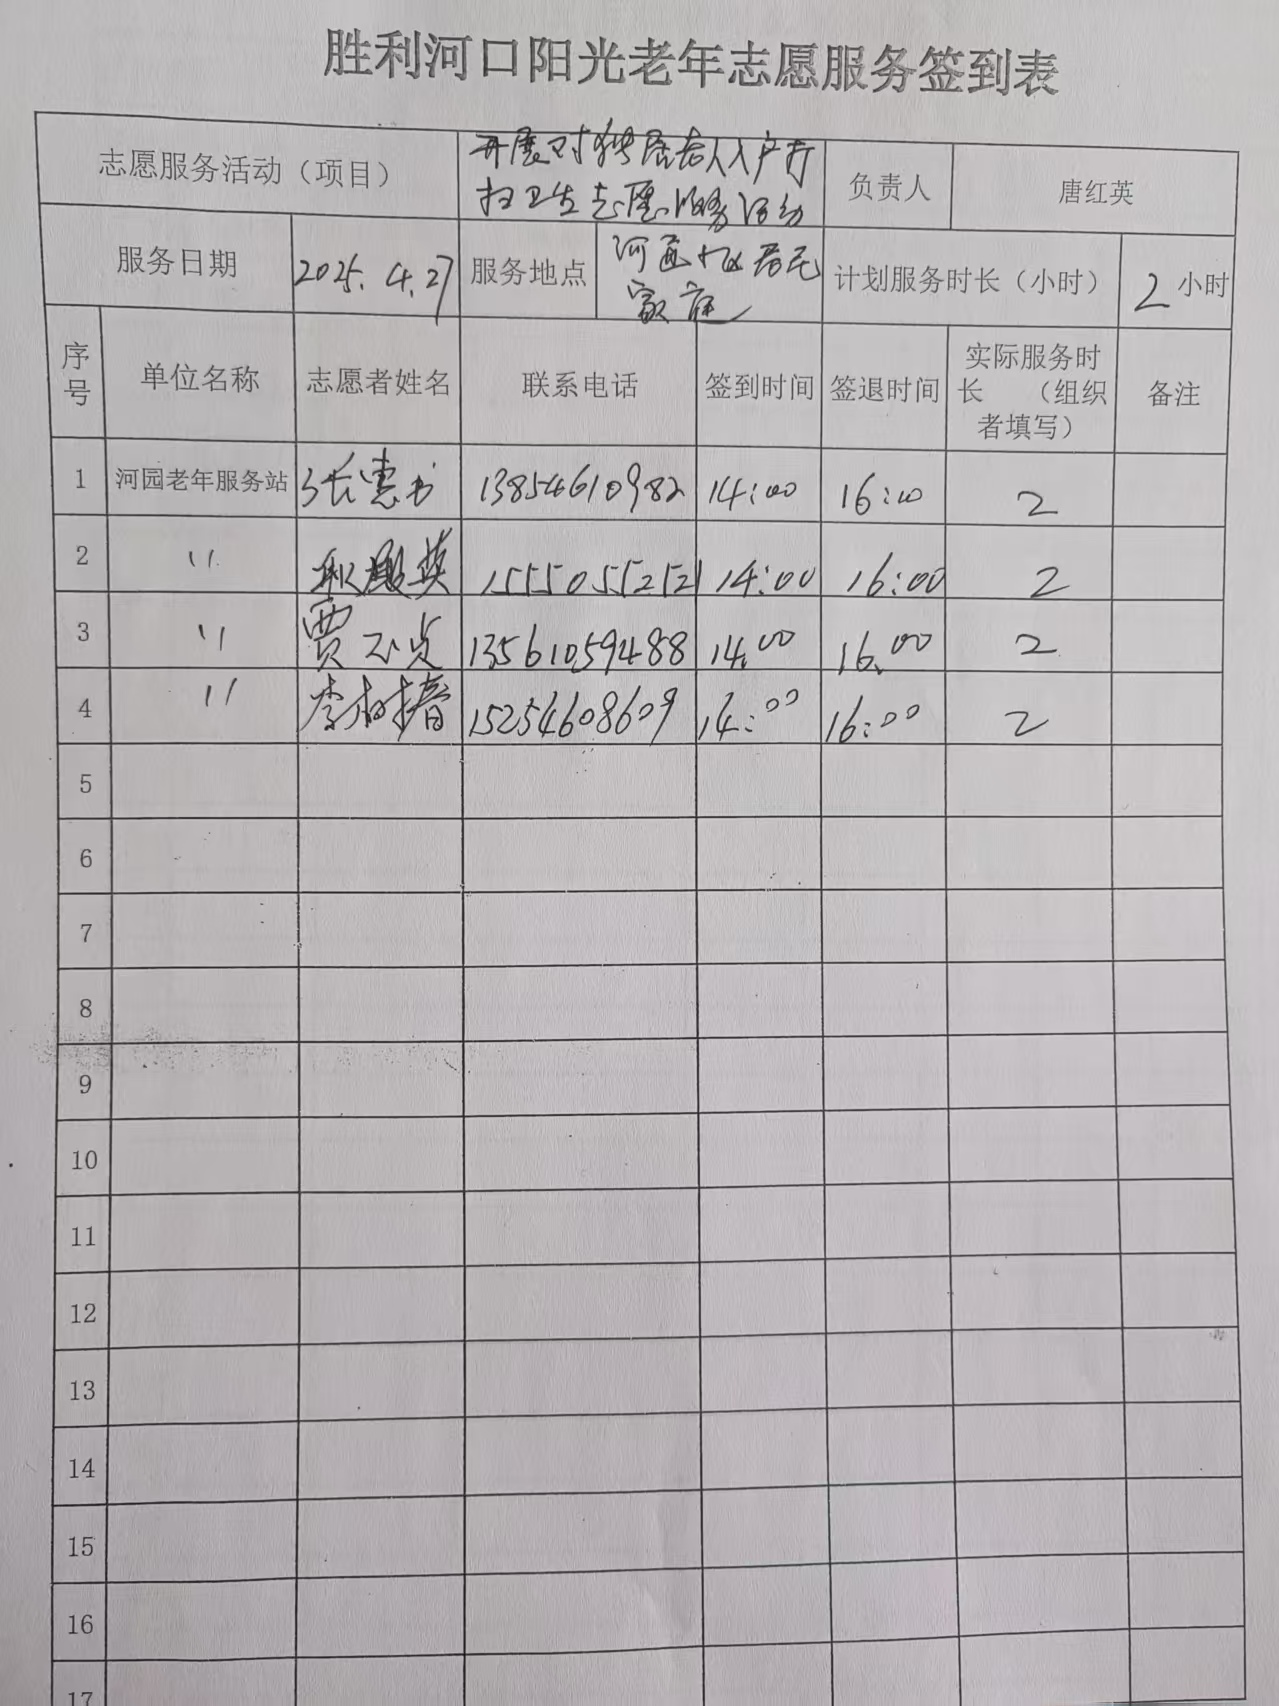 胜利河口阳光老年志愿服务签到表
志愿服务活动（项目） 开展对独居老人入户打 负责人 唐红英
扫卫生志愿服务活动
服务日期 2025.4.27 服务地点 河 社区居民 计划服务时长（小时） 2小时
家庭
序号 单位名称 志愿者姓名 联系电话 签到时间 签退时间 实际服务时长 （组织者填写） 备注
1 河园老年服务站 张惠 13854610982 14:00 16:00 2
2 〃 英 15550552521 14:00 16:00 2
3 〃 贾 贞 13561059488 14.00 16.00 2
4 〃 李树春 15254608609 14:00 16:00 2
5
6
7
8
9
10
11
12
13
14
15
16
17